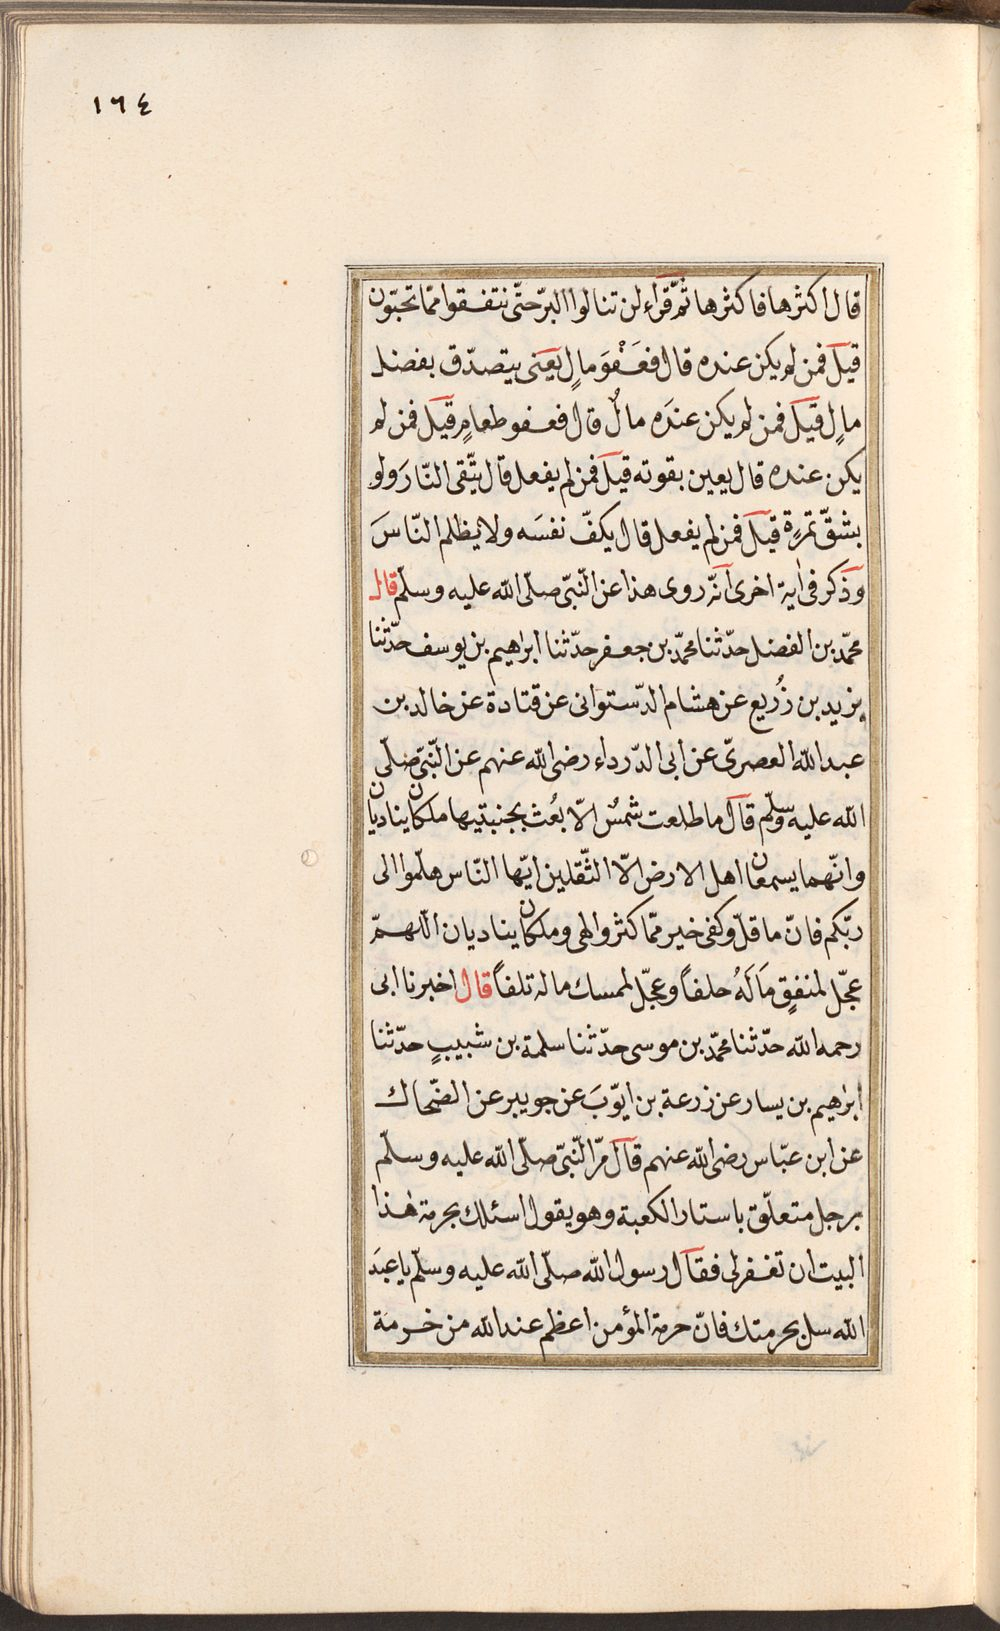 ١٦٤
قال اكثرها فاكثرها ثمّ قراء لن تنالوا البرّ حتّى تنفقوا ممّا تحبّون
قيل فمن لم يكن عنده قال فعَفْوَ مالٍ يعنى يتصدّق بفضل
مالٍ قيل فمن لم يكن عندَه مالٌ قال فعفو طعامٍ قيل فمن لم
يكن عنده قال يعين بقوته قيل فمن لم يفعل قال يتّقى النّارَ ولو
بشقّ تمرةٍ قيل فمن لم يفعل قال يكفّ نفسَه ولا يظلم النّاسَ
وذكر فى اية اخرى انّه روى هذا عن النّبىّ صلّى الله عليه وسلّم قال
محمّد بن الفضل حدّثنا محمّد بن جعفر حدّثنا ابرٰهيم بن يوسف حدّثنا
يزيد بن زُريع عن هشام الدّستوانى عن قتادة عن خالد بن
عبد الله العصرىّ عن أبى الدّرداء رضى الله عنهم عن النّبىّ صلّى
الله عليه وسلّم قال ما طلعت شمسٌ الّا بُعث بجنبتيها ملكان يناديان
وانّهما يسمعان اهل الارض الّا الثّقلين ايّها النّاس هلّموا الى
ربّكم فانّ ما قلّ وكفى خير ممّا كثر والهى وملكان يناديان اللّهمّ
عجّل لمنفقٍ مَالَهُ خلفاً وعجّل لممسك ماله تلفاً قال اخبرنا ابى
رحمه الله حدّثنا محمّد بن موسى حدّثنا سلمة بن شبيبٍ حدّثنا
ابرٰهيم بن يسار عن زرعة بن ايّوبَ عن جويبر عن الضّحاك
عن ابن عبّاس رضى الله عنهم قال مرّ النّبىّ صلّى الله عليه وسلّم
برجل متعلّق باستار الكعبة وهو يقول اسئلك بحرمة هٰذا
البيت ان تغفر لى فقال رسول الله صلّى الله عليه وسلّم يا عبدَ
الله سل بحرمتك فانّ حرمة المؤمن اعظم عند الله من حرمَة